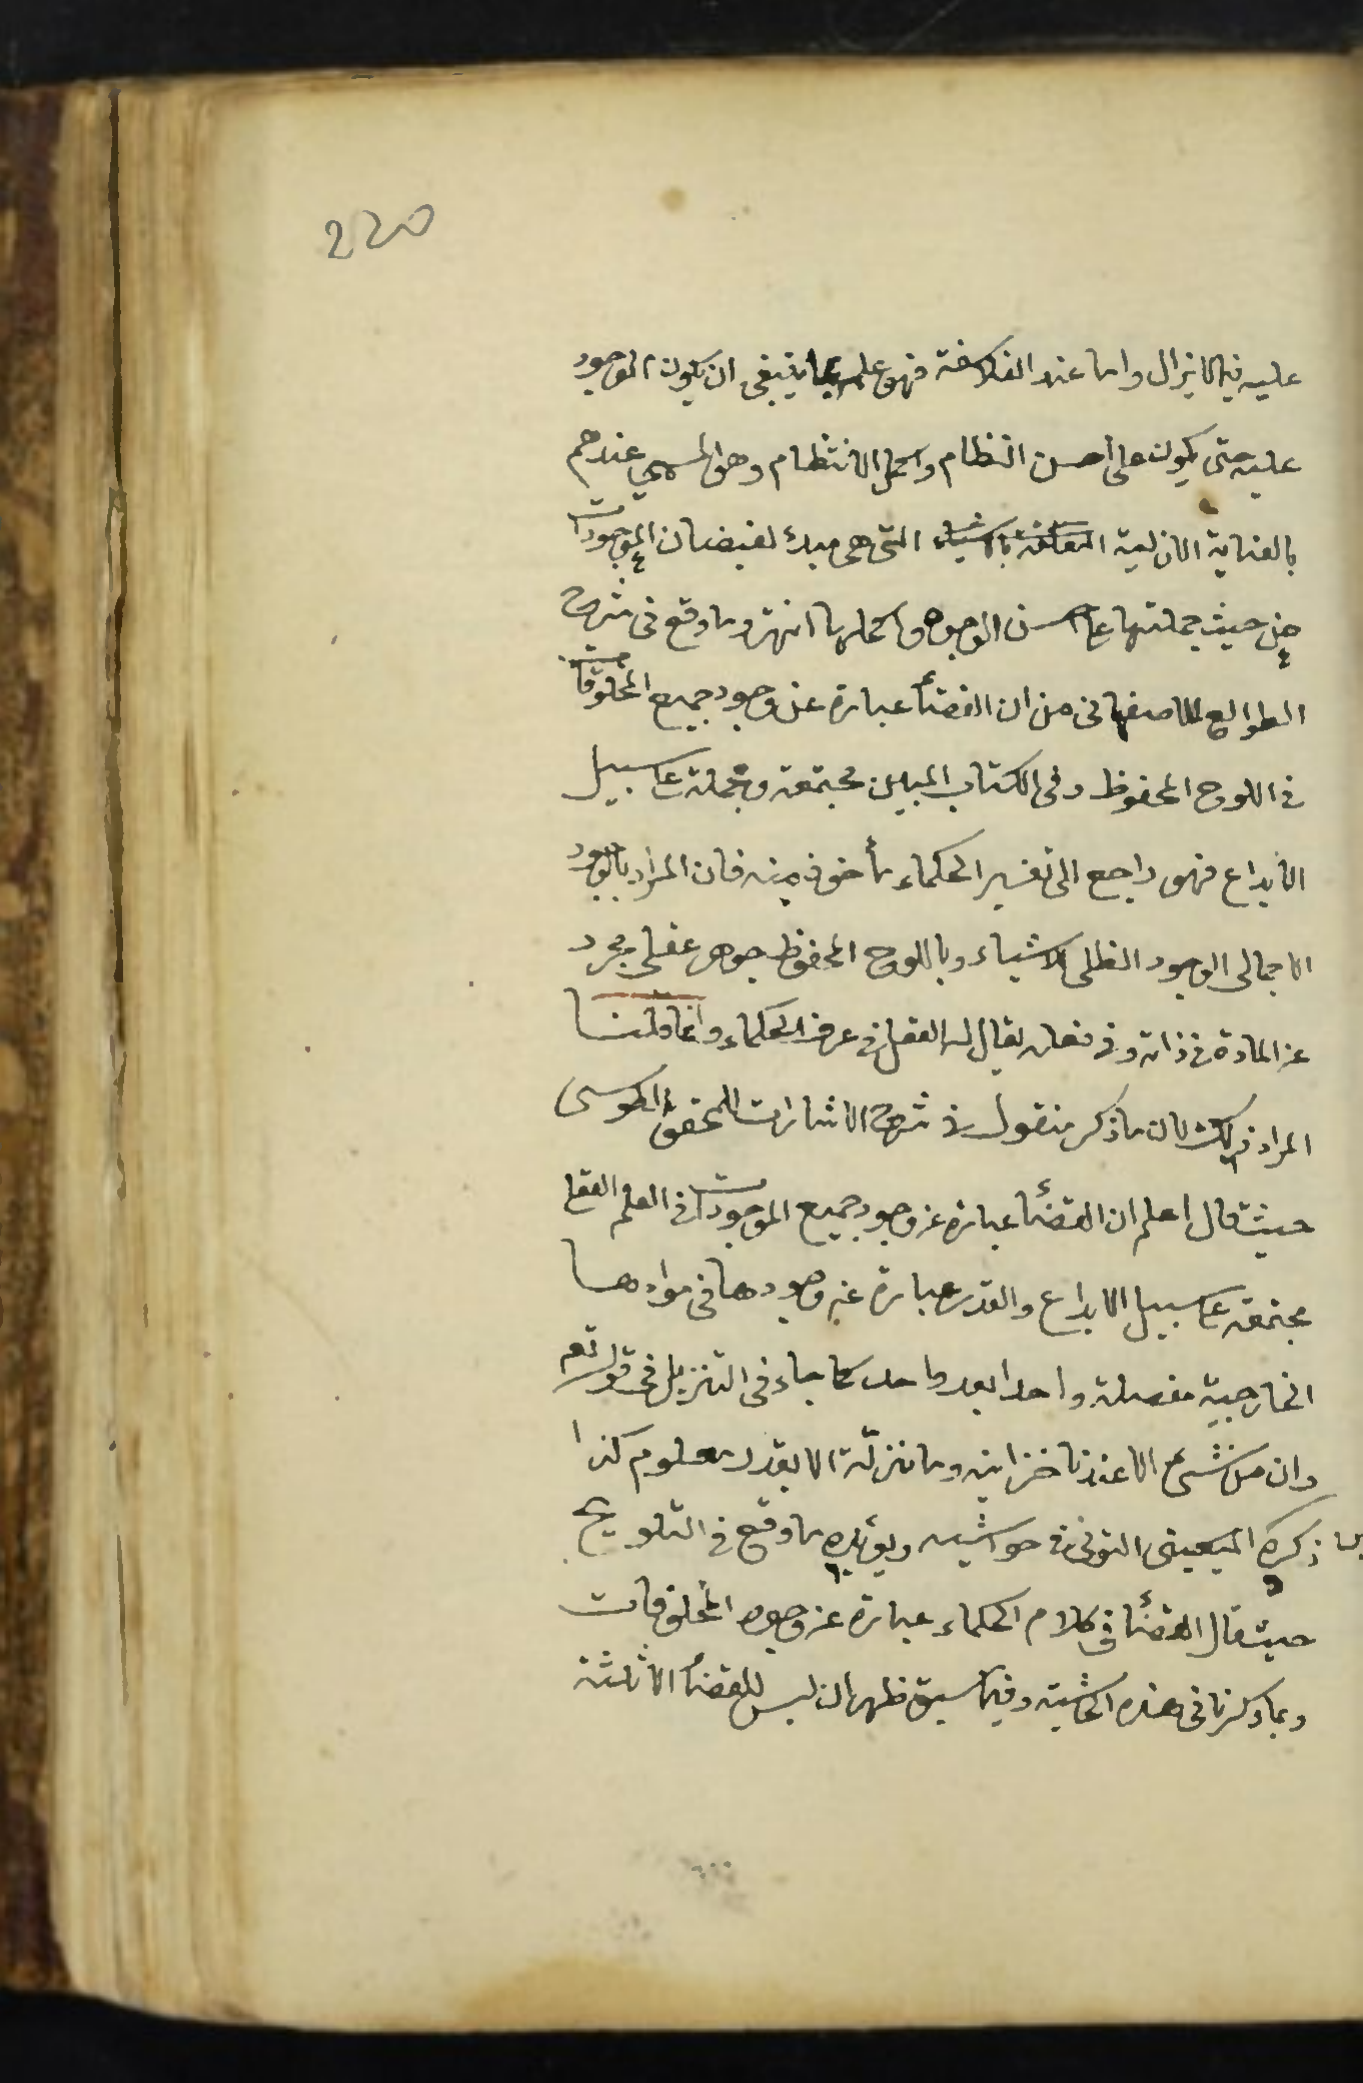 220
عليه فيما لا يزال واما عند الفلاسفة فهو علمه بما ينبغي ان يكون الوجود
عليه حتى يكون على احسن النظام واكمل الانتظام وهو المسمى عندهم
بالعناية الازلية المتعلقة بالاشياء التى هى مبدأ لفيضان الموجودات
من حيث جملتها على احسن الوجوه واكملها انتهى وما وقع فى شرح
الطوالع للاصفهانى من ان القضأ عبارة عن وجود جميع المخلوقات
فى اللوح المحفوظ وفى الكتاب المبين مجتمعة ومجملة على سبيل
الابداع فهو راجع الى تفسير الحكماء مأخوذ منه فان المراد بالوجود
الاجمالى الوجود الظلى للاشياء وباللوح المحفوظ جوهر عقلى مجرد
عن المادة فى ذاته وفى فعله يقال له العقل فى عرف الحكماء وانما قلنا
المراد ذلك لان ما ذكر منقول فى شرح الاشارات للمحقق الطوسى
حيث قال اعلم ان القضأ عبارة عن وجود جميع الموجودات فى العلم العقلى
مجتمعة على سبيل الابداع والقدر عبارة عن وجودها فى موادها
الخارجية مفصلة واحدا بعد واحد كما جاء فى التنزيل فى قوله تعم
وان من شىء الا عندنا خزاينه وما ننزله الا بقدر معلوم كذا
ذكره فى حواشيه ويؤيده ما وقع فى التلويح
حيث قال القضأ فى كلام الحكماء عبارة عن وجود المخلوقات
وبما ذكرنا فى هذه الحاشية وفيما سبق ظهر ان ليس للقضأ الا ثلثة